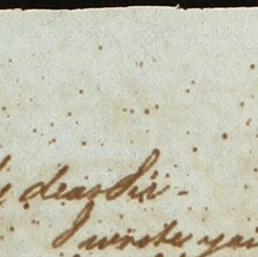 dear Sir -
I wrote you